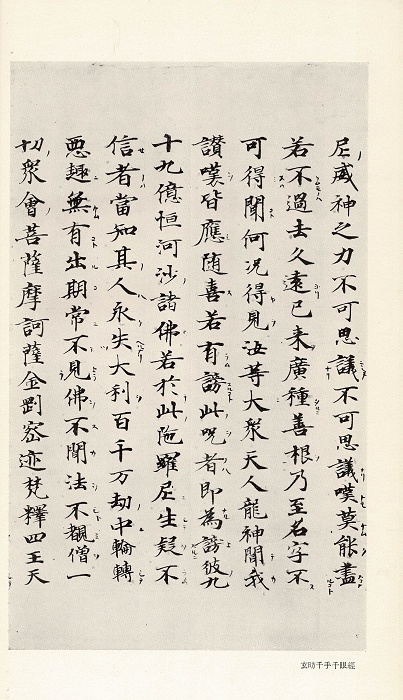 尼威神之力不可思議不可思議嘆莫能盡
若不過去久遠已来廣種善根乃至名字不
可得聞何况得見汝等大衆天人龍神聞我
讃嘆皆應随喜若有謗此呪者即為謗彼九
十九億恒河沙諸佛若於此陁羅尼生疑不
信者當知其人永失大利百千万劫中輪轉
悪趣無有出期常不見佛不聞法不覩僧一
切衆會菩薩摩訶薩金剛密迹梵釋四王天
玄昉千手千眼經